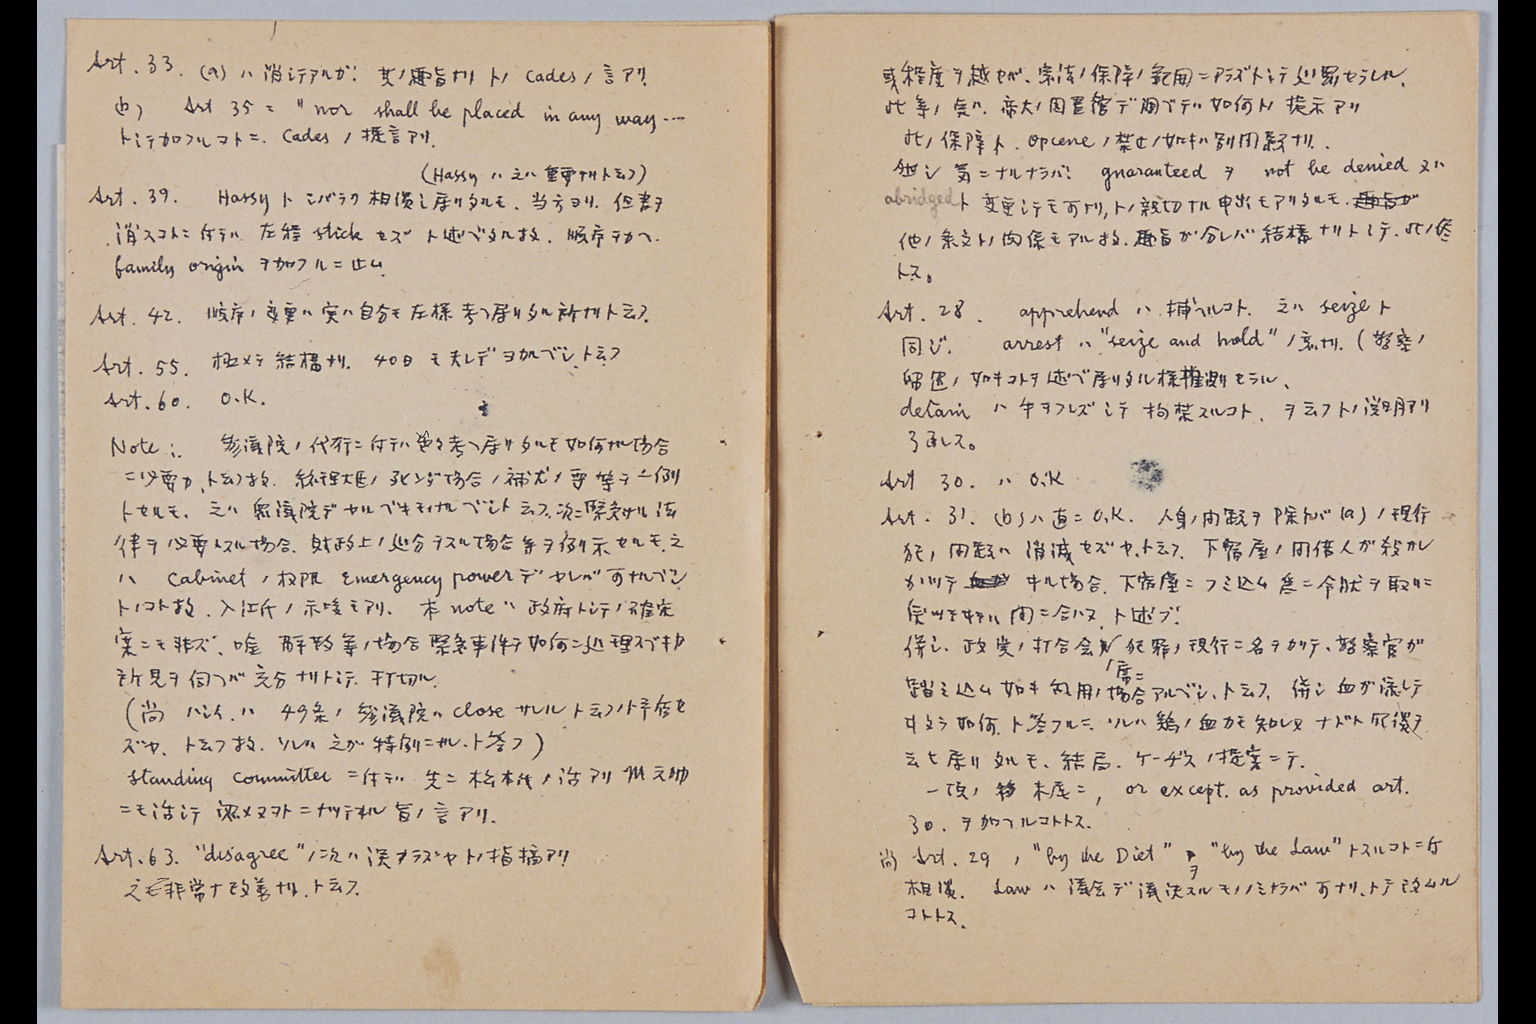 Art. 33. (a) ハ消シテアルガ! 其ノ趣旨ナリ ト Cades ノ言アリ
(b) Art 35 = "nor shall be placed in any way ----
トシテ加フルコトニ、Cades ノ提言アリ.
(Hassy ハ之ハ重要ナリト云フ)
Art. 39. Hassy ト シバラク相談シ居リタルモ、当方ヨリ、但書ヲ
消スコトニ付テハ 左程 stick セズ ト述ベタル故. 順序ヲカヘ
family origin ヲ加フルニ止ム
Art. 42. 順序ノ変更ハ実ハ自分モ左様考ヘ居リタル所ナリト云フ.
Art. 55. 極メテ結構ナリ. 40日モ夫レデヨカルベシ、ト云フ
Art. 60. O.K.
Note: 参議院ノ代行ニ付テハ 考ヘ居リタルモ如何ナル場合
ニ必要カ、ト云フ故. 総理大臣ノ死ンダ場合ノ補充ノ 等ヲ一例
トセルモ、之ハ衆議院デヤルベキモノナルベシト云フ. 次ニ緊急ナル法
律ヲ必要トスル場合. 財政上ノ処分ヲスル場合等ヲ例示セルモ、之
ハ Cabinet ノ権限 emergency power デヤレバ可ナルベシ
トノコト故. 入江氏ノ示唆モアリ. 本 note ハ政府トシテノ確定
案ニモ非ズ、唯 解散等ノ場合緊急事件ヲ如何ニ処理スベキカ
所見ヲ伺ヘバ充分ナリトシテ、打切ル.
(尚 ハッシィ ハ 49条ノ参議院ハ close サレル ト云フハ不存セ
ズヤ、ト云フ故. ソレハ之ガ特例ニナル、ト答フ)
Standing committee ニ付テハ 先ニ松本氏ノ話アリ
ニモ話シテ認メヌコトニナッテヰル旨ノ言アリ.
Art. 63. "disagree" ノ次ハ 誤ナラズヤトノ指摘アリ
之モ非常ナ改善ナリ、ト云フ.
或程度ヲ越セバ、憲法ノ保障ノ範囲ニアラズトシテ処罰セラレル.
此等ノ点ハ. 帝大ノ図書館デ調ベテハ如何トノ提示アリ
此ノ保障ト. opcene ノ禁止ノ如キハ別問題ナリ.
然シ気ニナルナラバ! guaranteed ヲ not be denied 又ハ
abridged ト変更シテモ可ナリ, トノ親切ナル申出モアリタルモ. 趣旨ガ
他ノ条文トノ関係モアル故. 趣旨ガ分レバ結構ナリトシテ. 此ノ儘
トス。
Art. 28. apprehend ハ捕ヘルコト. 之ハ seize ト
同ジ. arrest ハ "seize and hold" ノ意ナリ. (警察ノ
留置ノ如キコトヲ述ベ居リタル様推測セラル、
detain ハ手ヲフレズシテ拘禁スルコト、ヲ云フトノ説明アリ
了承ス。
Art 30. ハ O.K
Art. 31. (b) ハ直ニ O.K. 人身ノ問題ヲ除ケバ (a) ノ現行
犯ノ問題ハ消滅セズヤ、ト云フ. 下宿屋ノ同宿人ガ殺カレ
カカッテヰル場合. 下宿屋ニフミ込ム為ニ令状ヲ取リニ
間ニ合ハヌ、ト述ブ.
併シ、政党ノ打合会ノ席ニ犯罪ノ現行ニ名ヲカリテ、警察官ガ
踏ミ込ム如キ乱用ノ場合アルベシ、ト云フ. 併シ血ガ流レテ
ヰタラ如何、ト答フルニ、ソレハ鶏ノ血カモ知レヌ ナドト
云ヒ居リタルモ、結局. ケーヂスノ提案ニテ.
一項ノ末尾ニ, or except. as provided art.
30. ヲ加ヘルコトトス.
尚 Art. 29 , "by the Diet" ヲ "by the Law" トスルコトニ付
相談. Law ハ議会デ議決スルモノノミナラバ可ナリ、トテ改ムル
コトトス.